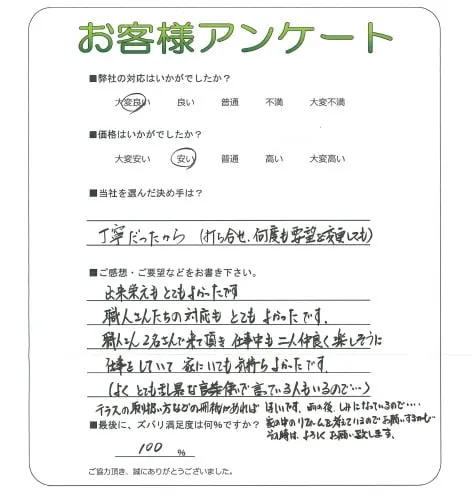 お客様アンケート
■弊社の対応はいかがでしたか？
大変良い 良い 普通 不満 大変不満
■価格はいかがでしたか？
大変安い 安い 普通 高い 大変高い
■当社を選んだ決め手は？
丁寧だったから (打ち合せ、何度も要望を変更しても)
■ご感想・ご要望などをお書き下さい。
出来栄えもとてもよかったです
職人さんたちの対応も とてもよかったです。
職人さん2名さんで来て頂き 仕事中も二人仲良く楽しそうに
仕事をしていて 家にいても気持ちよかったです。
(よく とても乱暴な言葉使で言っている人もいるので…)
テラスの取り扱い方などの冊子があれば ほしいです。雨の後、しみになっているので…
家の中のリフォームも考えているのでお願いするかも
その時は、よろしくお願い致します。
■最後に、ズバリ満足度は何％ですか？
100 ％
ご協力頂き、誠にありがとうございました。